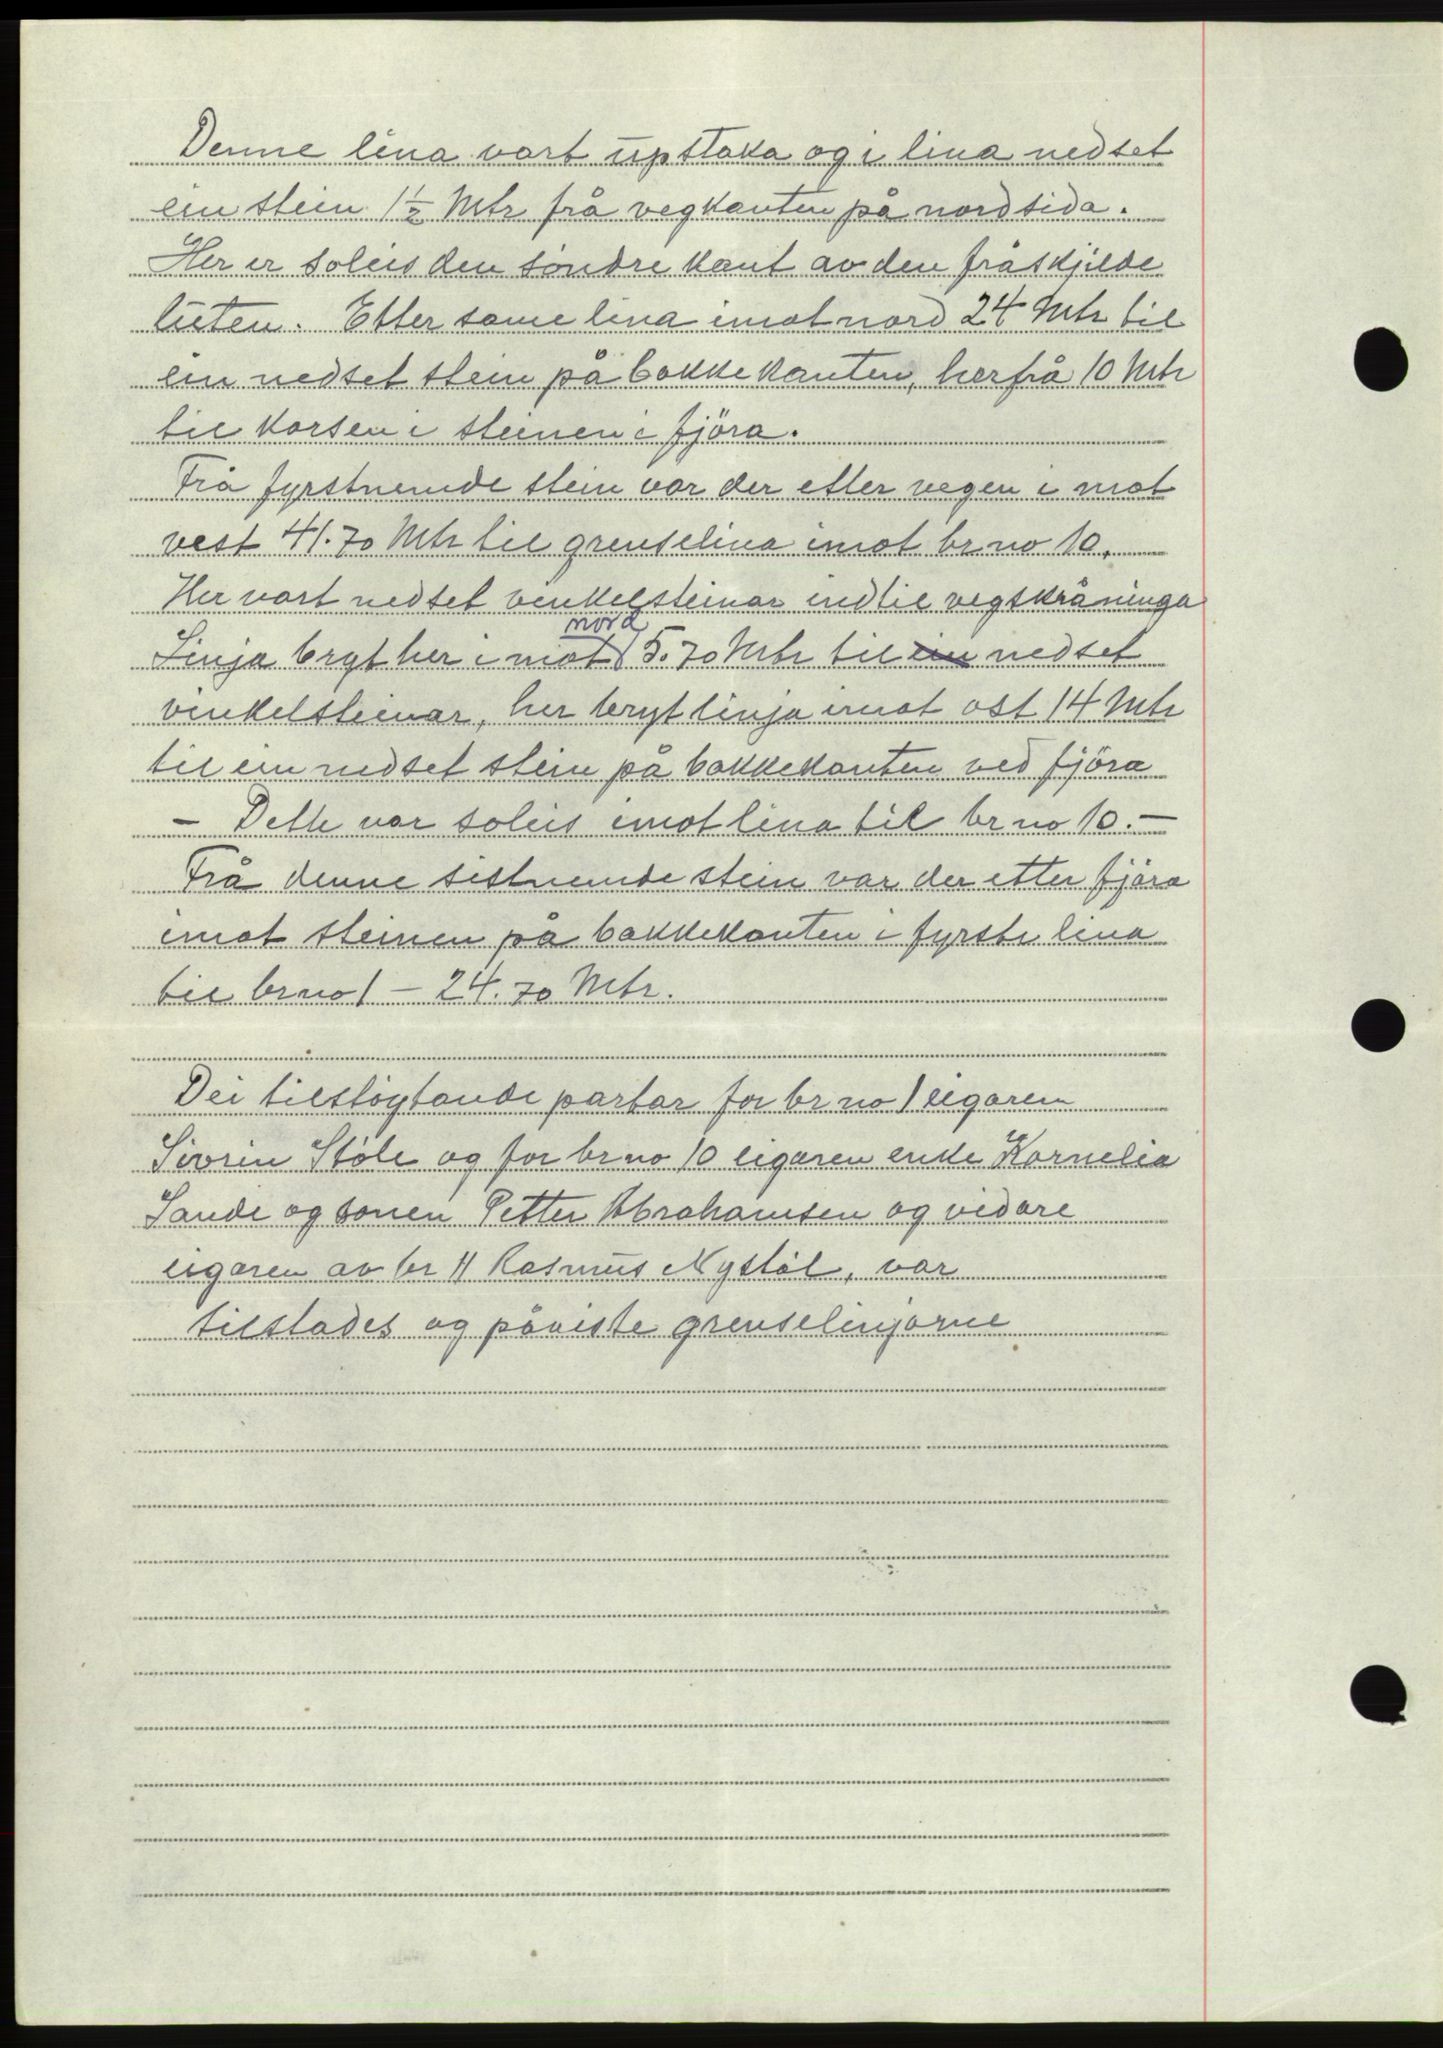 Denne lina vart upstaka og i lina nedset
ein stein 1½ Mtr frå vegkanten på nordsida.
Her er soleis den söndre kant av den fråskjilde
luten. Etter same lina imot nord 24 Mtr til
ein nedset stein på bakkekanten, herfrå 10 Mtr
til korsen i steinen i fjöra.
Frå fyrstnemde stein var der etter vegen i mot
vest 41.70 Mtr til grenselina imot br no 10.
Her vart nedset vinkelsteinar indtil vegskråninga
Linja bryt her i mot nord 5.70 Mtr til ein nedset
vinkelsteinar, her bryt linja imot ost 14 Mtr
til ein nedset stein på bakkekanten ved fjöra
- Dette var soleis imot lina til br no 10.-
Frå denne sistnemde stein var der etter fjöra
imot steinen på bakkekanten i fyrste lina
til br no 1 - 24.70 Mtr.
Dei tilstöytande partar for br no 1 eigaren
Sivrin Stöle og for br no 10 eigaren enke Kornelia
Sande og sonen Petter Abrahamsen og vidare
eigaren av br 11 Rasmus Nystöl, var
tilstades og påviste grenselinjorne